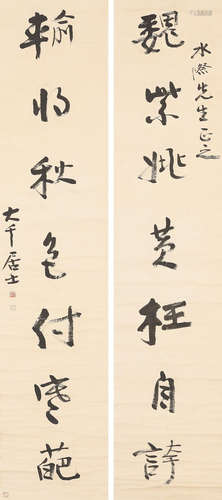 水際先生正之
魏紫姚黄枉自誇
輸將秋色付寒葩
大千居士